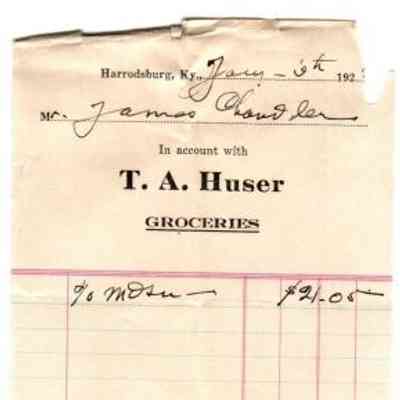 Harrodsburg, Ky., Jany - 6th 192
Mr. James Chandler
In account with
T. A. Huser
GROCERIES
% Mdse — $21.05